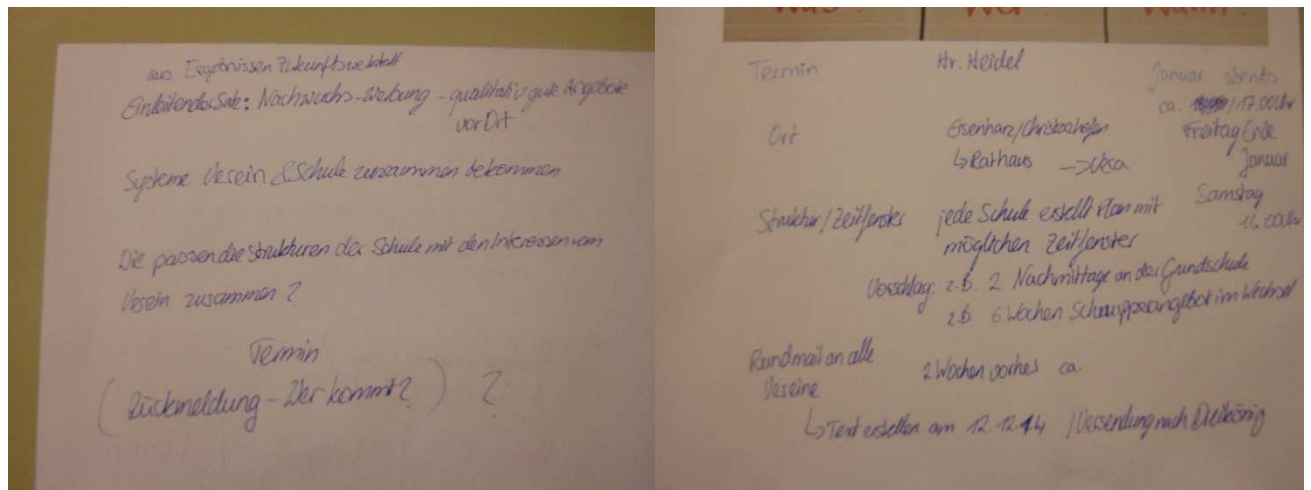 aus Ergebnissen Zukunftswerkstatt
Einleitender Satz: Nachwuchs-Werbung - qualitativ gute Angebote
vor Ort
Systeme Verein & Schule zusammen bekommen
Wie passen die Strukturen der Schule mit den Interessen vom
Verein zusammen?
Termin
(Rückmeldung - Wer kommt?) ?
Was? Wer? Wann?
Termin Hr. Heidel Januar abends
ca. /17.00 Uhr
Ort Eisenharz/Christazhofen Freitag Ende
↳ Rathaus → Januar
Samstag
Struktur/Zeitfenster jede Schule erstellt Plan mit 16.00 Uhr
möglichen Zeitfenster
Vorschlag: z.B. 2 Nachmittage an der Grundschule
z.B 6 Wochen Schnupperangebot im Wechsel
Rundmail an alle
Vereine 2 Wochen vorher ca.
↳ Text erstellen am 12.12.14 / Versendung nach Dreikönig